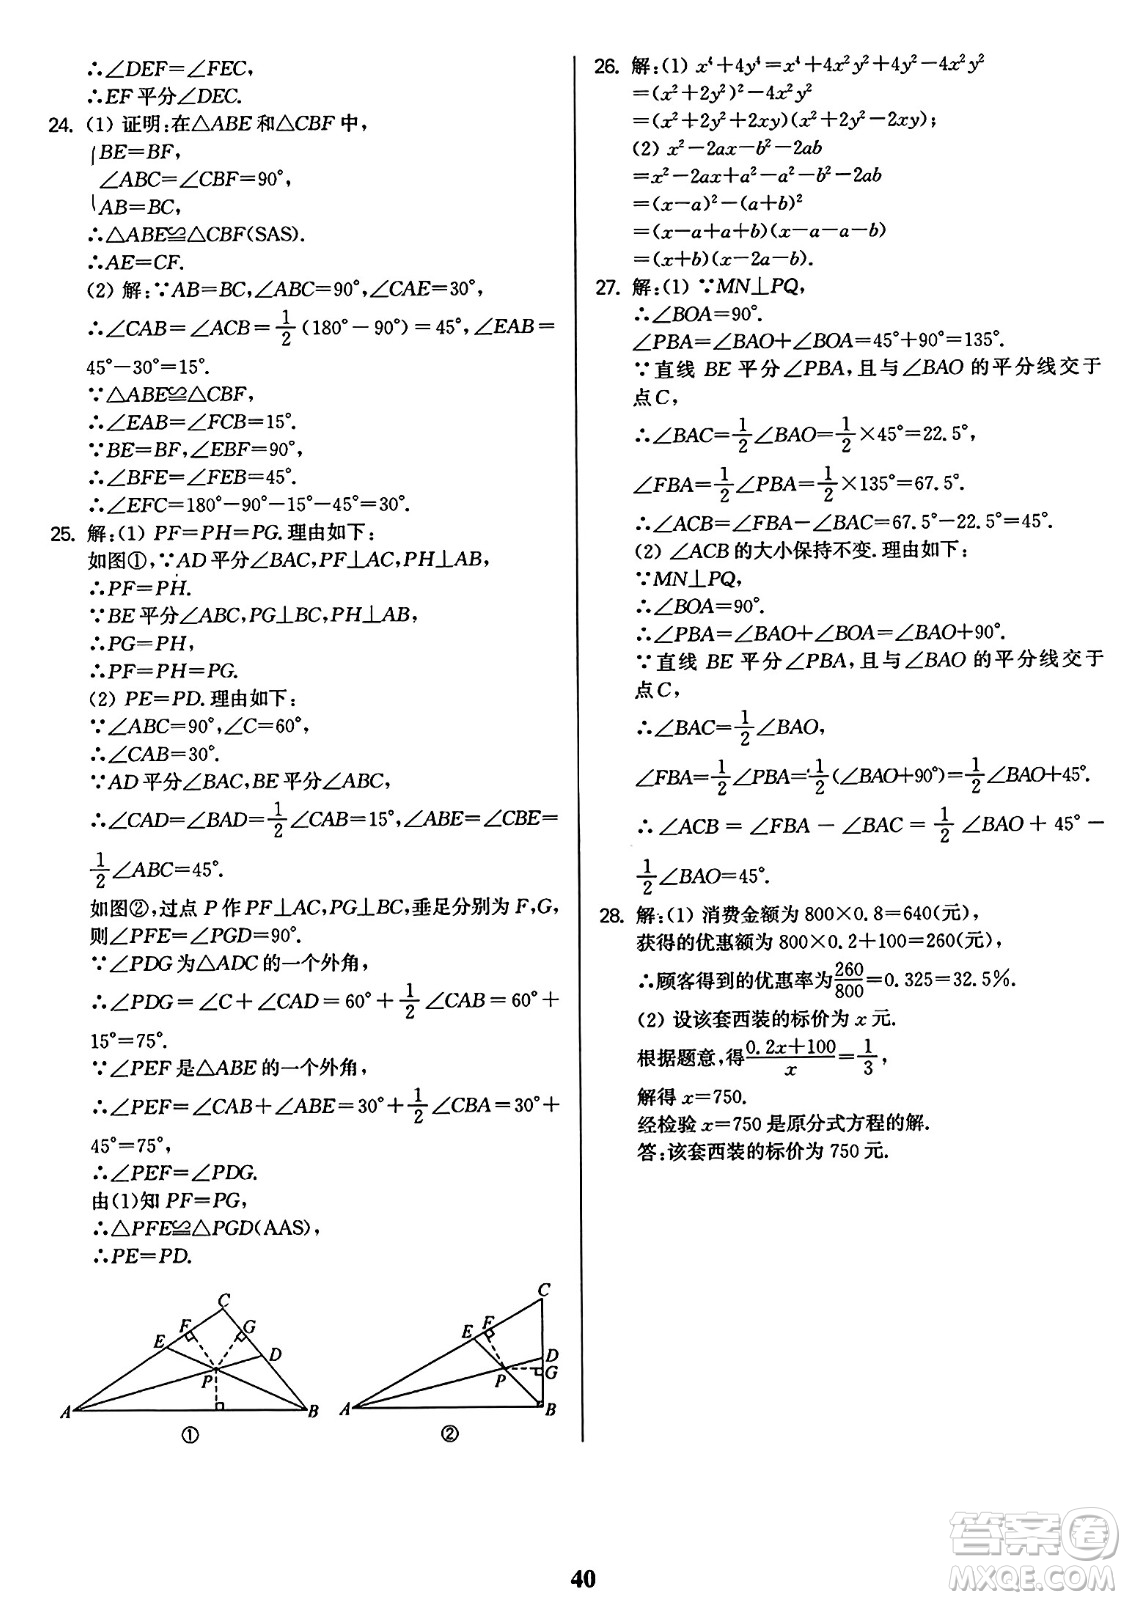 ∴∠DEF=∠FEC,
∴EF平分∠DEC.
24. (1) 证明:在△ABE和△CBF中,
BE=BF,
∠ABC=∠CBF=90°,
AB=BC,
∴△ABE≌△CBF(SAS).
∴AE=CF.
(2) 解:∵AB=BC,∠ABC=90°,∠CAE=30°,
∴∠CAB=∠ACB=1/2(180°-90°)=45°,∠EAB=
45°-30°=15°.
∵△ABE≌△CBF,
∴∠EAB=∠FCB=15°.
∵BE=BF,∠EBF=90°,
∴∠BFE=∠FEB=45°.
∴∠EFC=180°-90°-15°-45°=30°.
25. 解:(1) PF=PH=PG.理由如下:
如图①,∵AD平分∠BAC,PF⊥AC,PH⊥AB,
∴PF=PH.
∵BE平分∠ABC,PG⊥BC,PH⊥AB,
∴PG=PH,
∴PF=PH=PG.
(2) PE=PD.理由如下:
∵∠ABC=90°,∠C=60°,
∴∠CAB=30°.
∵AD平分∠BAC,BE平分∠ABC,
∴∠CAD=∠BAD=1/2∠CAB=15°,∠ABE=∠CBE=
1/2∠ABC=45°.
如图②,过点P作PF⊥AC,PG⊥BC,垂足分别为F,G,
则∠PFE=∠PGD=90°.
∵∠PDG为△ADC的一个外角,
∴∠PDG=∠C+∠CAD=60°+1/2∠CAB=60°+
15°=75°.
∵∠PEF是△ABE的一个外角,
∴∠PEF=∠CAB+∠ABE=30°+1/2∠CBA=30°+
45°=75°,
∴∠PEF=∠PDG.
由(1)知PF=PG,
∴△PFE≌△PGD(AAS),
∴PE=PD.
C
F
G
E
D
P
A
B
①
C
F
E
D
G
P
A
B
②
26. 解:(1) x⁴+4y⁴=x⁴+4x²y²+4y²-4x²y²
=(x²+2y²)²-4x²y²
=(x²+2y²+2xy)(x²+2y²-2xy);
(2) x²-2ax-b²-2ab
=x²-2ax+a²-a²-b²-2ab
=(x-a)²-(a+b)²
=(x-a+a+b)(x-a-a-b)
=(x+b)(x-2a-b).
27. 解:(1) ∵MN⊥PQ,
∴∠BOA=90°.
∠PBA=∠BAO+∠BOA=45°+90°=135°.
∵直线BE平分∠PBA,且与∠BAO的平分线交于
点C,
∴∠BAC=1/2∠BAO=1/2×45°=22.5°,
∠FBA=1/2∠PBA=1/2×135°=67.5°.
∴∠ACB=∠FBA-∠BAC=67.5°-22.5°=45°.
(2) ∠ACB的大小保持不变.理由如下:
∵MN⊥PQ,
∴∠BOA=90°.
∴∠PBA=∠BAO+∠BOA=∠BAO+90°.
∵直线BE平分∠PBA,且与∠BAO的平分线交于
点C,
∴∠BAC=1/2∠BAO,
∠FBA=1/2∠PBA=1/2(∠BAO+90°)=1/2∠BAO+45°.
∴∠ACB=∠FBA-∠BAC=1/2∠BAO+45°-
1/2∠BAO=45°.
28. 解:(1) 消费金额为800×0.8=640(元),
获得的优惠额为800×0.2+100=260(元),
∴顾客得到的优惠率为260/800=0.325=32.5%.
(2) 设该套西装的标价为x元.
根据题意,得(0.2x+100)/x=1/3,
解得x=750.
经检验x=750是原分式方程的解.
答:该套西装的标价为750元.
40
答案卷
MXQE.COM